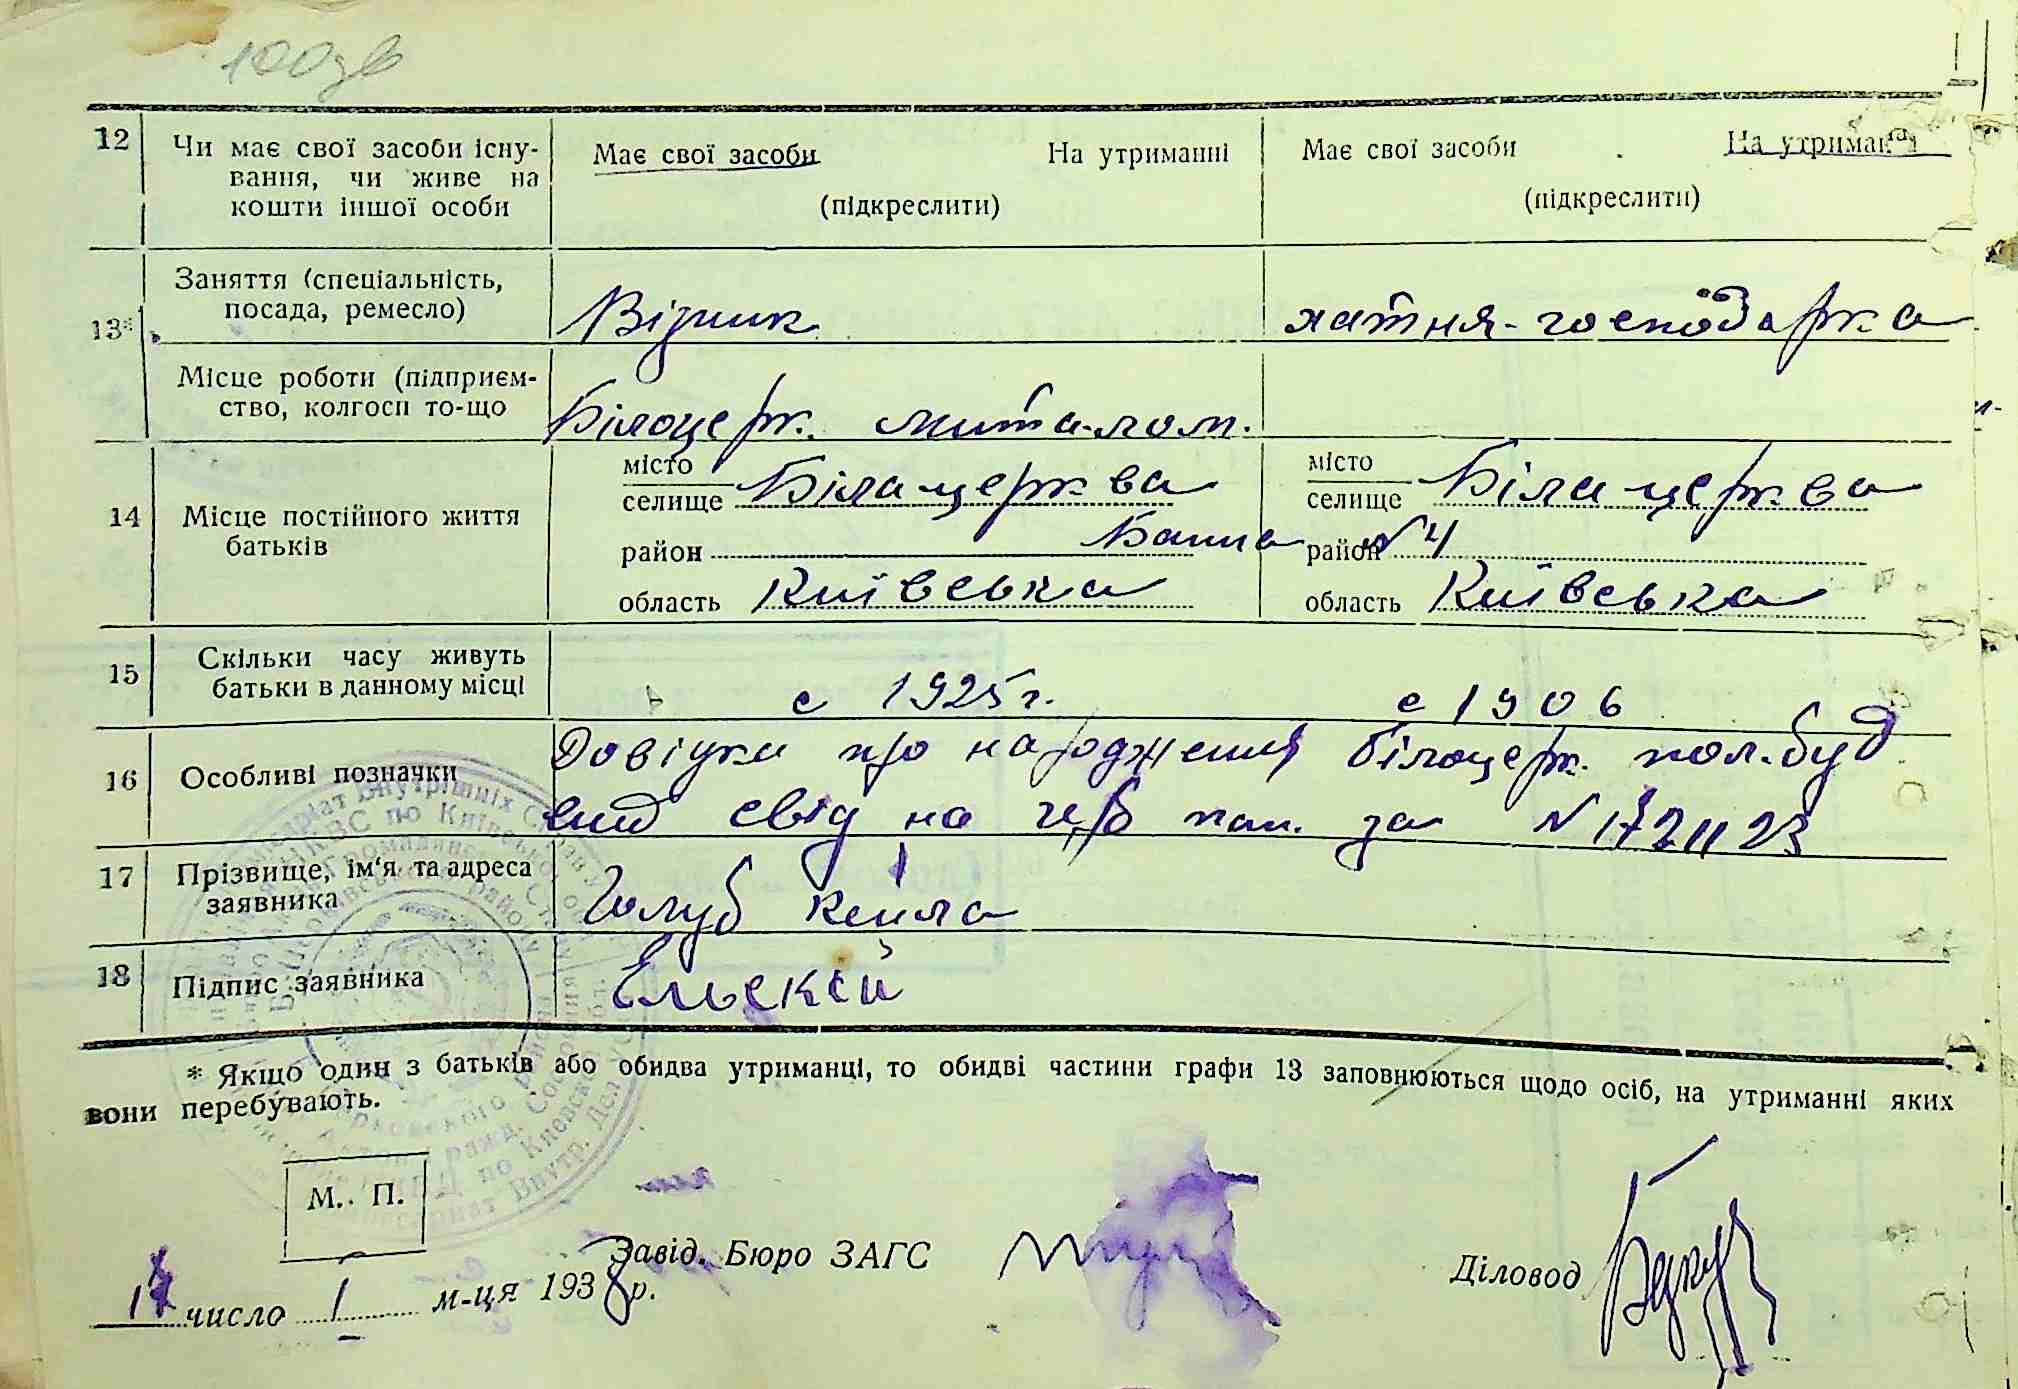 100 зв
12 Чи має свої засоби існу-
вання, чи живе на
кошти іншої особи
Має свої засоби На утриманні
(підкреслити)
Має свої засоби На утриманні
(підкреслити)
13* Заняття (спеціальність,
посада, ремесло)
Візник
хатня-господарка
Місце роботи (підприєм-
ство, колгосп то-що
Білоцерк.
14 Місце постійного життя
батьків
місто
селище Біла церква
район Банна
область Київська
місто
селище Біла церква
район №4
область Київська
15 Скільки часу живуть
батьки в данному місці
с 1925 г.
с 1906
16 Особливі позначки
Довідка про народження Білоцерк. пол.буд
вид свід на за №
17 Прізвище, ім'я та адреса
заявника
Голуб Кейла
18 Підпис заявника
* Якщо один з батьків або обидва утриманці, то обидві частини графи 13 заповнюються щодо осіб, на утриманні яких
вони перебувають.
М. П.
число 1 м-ця 1938 р.
Завід. Бюро ЗАГС
Діловод